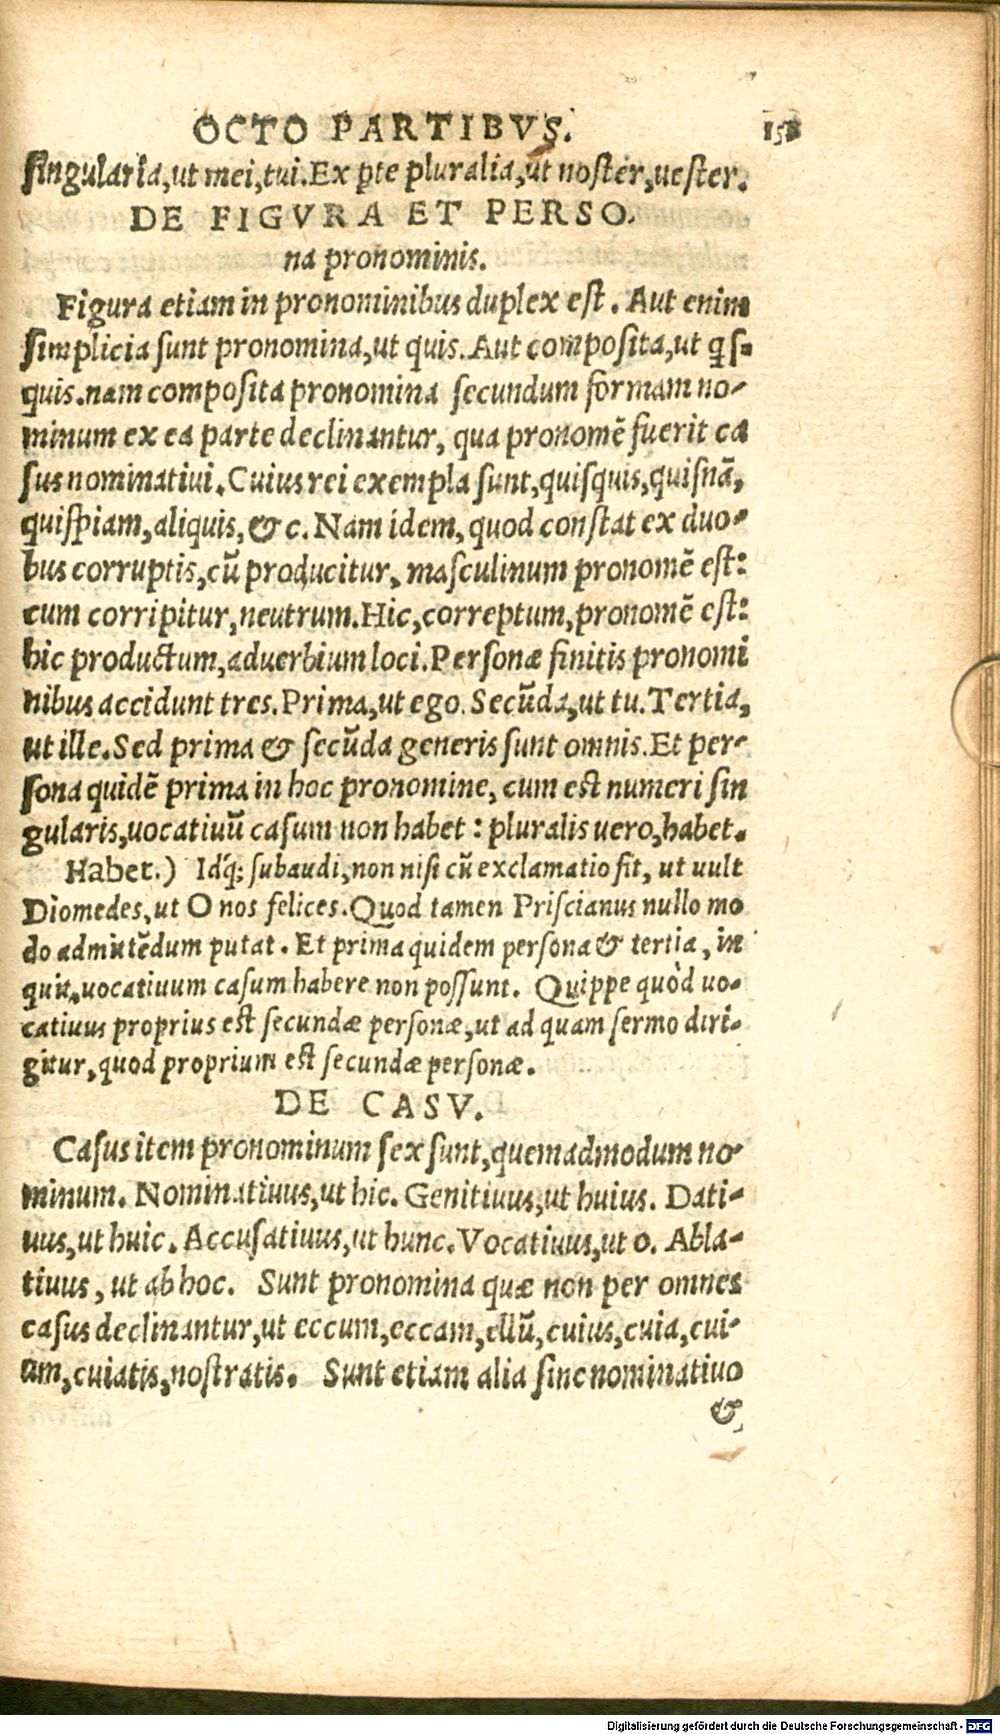 OCTO PARTIBVS.
singularia,ut mei,tui.Ex p̱te pluralia,ut noster,uester.
DE FIGVRA ET PERSO.
na pronominis.
Figura etiam in pronominibus duplex est. Aut enim
simplicia sunt pronomina,ut quis.Aut composita,ut q̃ s-
quis.nam composita pronomina secundum formam no-
minum ex ea parte declinantur, qua pronomẽ fuerit ca
sus nominatiui.Cuius rei exempla sunt,quisquis,quisnã,
quispiam,aliquis,& c.Nam idem,quod constat ex duo-
bus corruptis,cũ producitur, masculinum pronomẽ est:
cum corripitur,neutrum.Hic,correptum,pronomẽ est:
hic productum,aduerbium loci.Personæ finitis pronomi
nibus accidunt tres.Prima,ut ego.Secũda,ut tu.Tertia,
ut ille.Sed prima & secũda generis sunt omnis.Et per-
sona quidẽ prima in hoc pronomine, cum est numeri sin
gularis,uocatiuũ casum non habet : pluralis uero,habet.
Habet.) Idq́; subaudi,non nisi cũ exclamatio fit, ut uult
Diomedes,ut O nos felices.Quod tamen Priscianus nullo mo
do admittẽdum putat. Et prima quidem persona & tertia, in
quit,uocatiuum casum habere non possunt. Quippe quòd uo-
catiuus proprius est secundæ personæ,ut ad quam sermo diri-
gitur,quod proprium est secundæ personæ.
DE CASV.
Casus item pronominum sex sunt,quemadmodum no-
minum. Nominatiuus,ut hic. Genitiuus,ut huius. Dati-
uus,ut huic. Accusatiuus,ut hunc.Vocatiuus,ut o. Abla-
tiuus, ut ab hoc. Sunt pronomina quæ non per omnes
casus declinantur,ut eccum,eccam,ellũ,cuius,cuia,cui-
um,cuiatis,nostratis. Sunt etiam alia sine nominatiuo
&
Digitalisierung gefördert durch die Deutsche Forschungsgemeinschaft - DFG